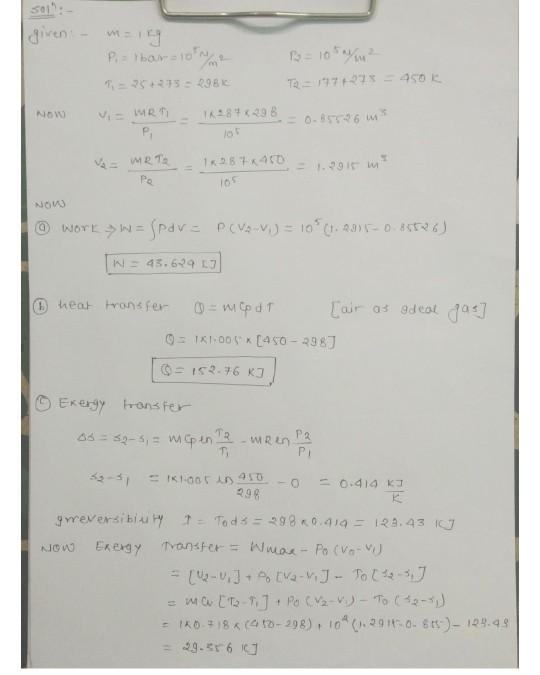 Sol^n:-
given:- m = 1 kg
P1 = 1 bar = 10^5 N/m^2 P2 = 10^5 N/m^2
T1 = 25+273 = 298K T2 = 177+273 = 450 K
NOW V1 = mRT1/P1 = 1×287×298/10^5 = 0.85526 m^3
V2 = mRT2/P2 = 1×287×450/10^5 = 1.2915 m^3
NOW
(a) Work → W = ∫Pdv = P(V2-V1) = 10^5 (1.2915-0.85526)
W = 43.624 KJ
(b) heat transfer Q = mCpdT [air as ideal gas]
Q = 1×1.005×[450-298]
Q = 152.76 KJ
(c) Exergy transfer
Δs = s2-s1 = mCp ln T2/T1 - mR ln P2/P1
s2-s1 = 1×1.005 ln 450/298 - 0 = 0.414 KJ/K
irreversibility I = T0ds = 298×0.414 = 123.43 KJ
NOW Exergy Transfer = Wmax - P0(V0-V1)
= [U2-U1] + P0[V2-V1] - T0[s2-s1]
= mCv[T2-T1] + P0(V2-V1) - T0(s2-s1)
= 1×0.718×(450-298) + 10^2(1.2915-0.855) - 123.43
= 29.356 KJ